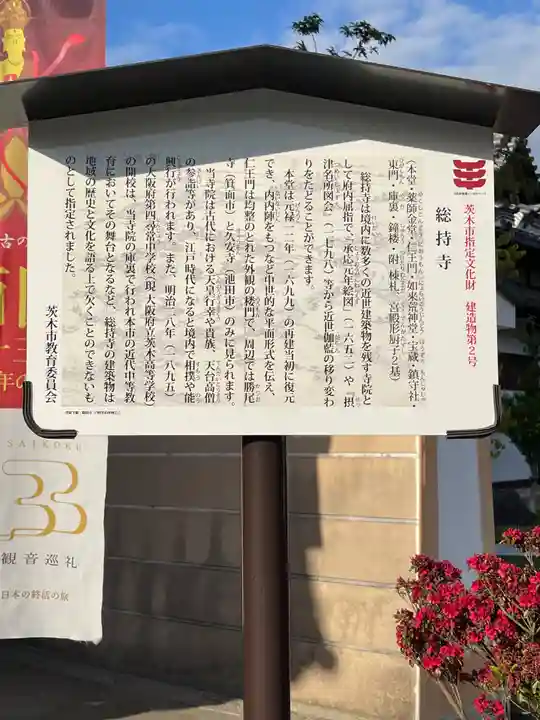 茨木市指定文化財　建造物第2号
総持寺
（本堂・薬師金堂・仁王門・如来荒神堂・宝蔵・鎮守社・
東門・庫裏・鐘楼・附 棟札・宮殿形厨子2基）
総持寺は境内に数多くの近世建築物を残す寺院と
して府内屈指で、「承応元年絵図」（一六五二）や『摂
津名所図会』（一七九八）等から近世伽藍の移り変わ
りをたどることができます。
本堂は元禄一二年（一六九九）の再建当初に復元
でき、内内陣をもつなど中世的な平面形式を伝え、
仁王門は均整のとれた外観の楼門で、周辺では勝尾
寺（箕面市）と久安寺（池田市）のみに見られます。
当寺院は古代における天皇行幸や貴族、天台高僧
の参詣等があり、江戸時代になると境内で相撲や能
興行が行われます。また、明治二八年（一八九五）
の大阪府第四尋常中学校（現 大阪府立茨木高等学校）
の開校は、当寺院の庫裏で行われ本市の近代中等教
育においてその舞台となるなど、総持寺の建築物は
地域の歴史と文化を語る上で欠くことのできないも
のとして指定されました。
茨木市教育委員会
SAIKOKU
観音巡礼
日本の終活の旅